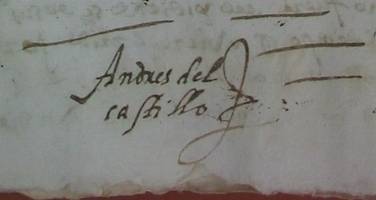 Andres del
castillo